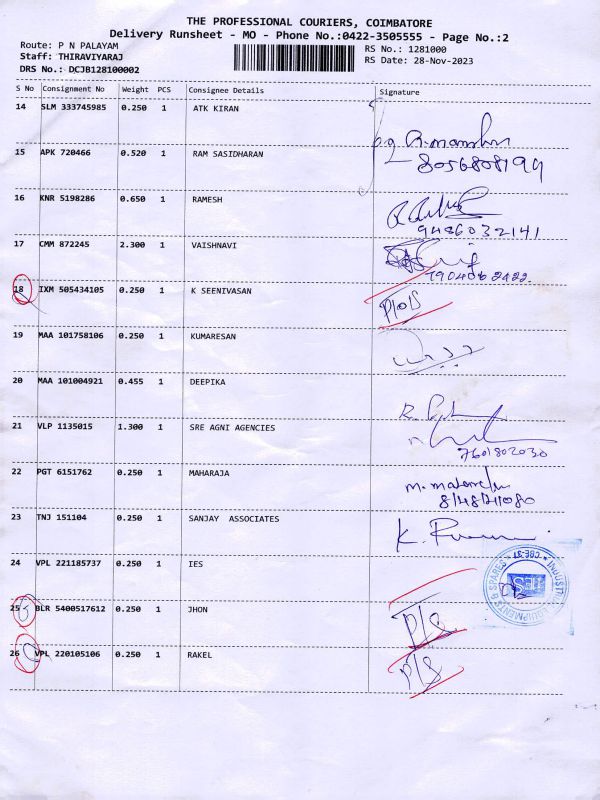 THE PROFESSIONAL COURIERS, COIMBATORE
Delivery Runsheet - MO - Phone No.:0422-3505555 - Page No.:2
Route: P N PALAYAM
RS No.: 1281000
Staff: THIRAVIYARAJ
RS Date: 28-Nov-2023
DRS No.: DCJB128100002
S No Consignment No Weight PCS Consignee Details Signature
14 SLM 333745985 0.250 1 ATK KIRAN
15 APK 720466 0.520 1 RAM SASIDHARAN
8056808199
16 KNR 5198286 0.650 1 RAMESH
9486032141
17 CMM 872245 2.300 1 VAISHNAVI
18 IXM 505434105 0.250 1 K SEENIVASAN
19 MAA 101758106 0.250 1 KUMARESAN
20 MAA 101004921 0.455 1 DEEPIKA
21 VLP 1135015 1.300 1 SRE AGNI AGENCIES
7601802030
22 PGT 6151762 0.250 1 MAHARAJA
23 TNJ 151104 0.250 1 SANJAY ASSOCIATES
24 VPL 221185737 0.250 1 IES
25 BLR 5400517612 0.250 1 JHON
P/S
26 VPL 220105106 0.250 1 RAKEL
P/S